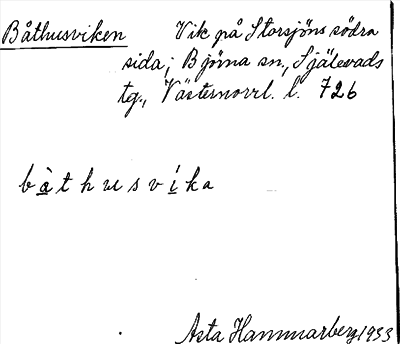 Båthusviken Vik på Storsjöns södra
sida; Björna sn., Själevads
tg., Västernorrl. l. 726
bàthusvíka
Asta Hammarberg 1933